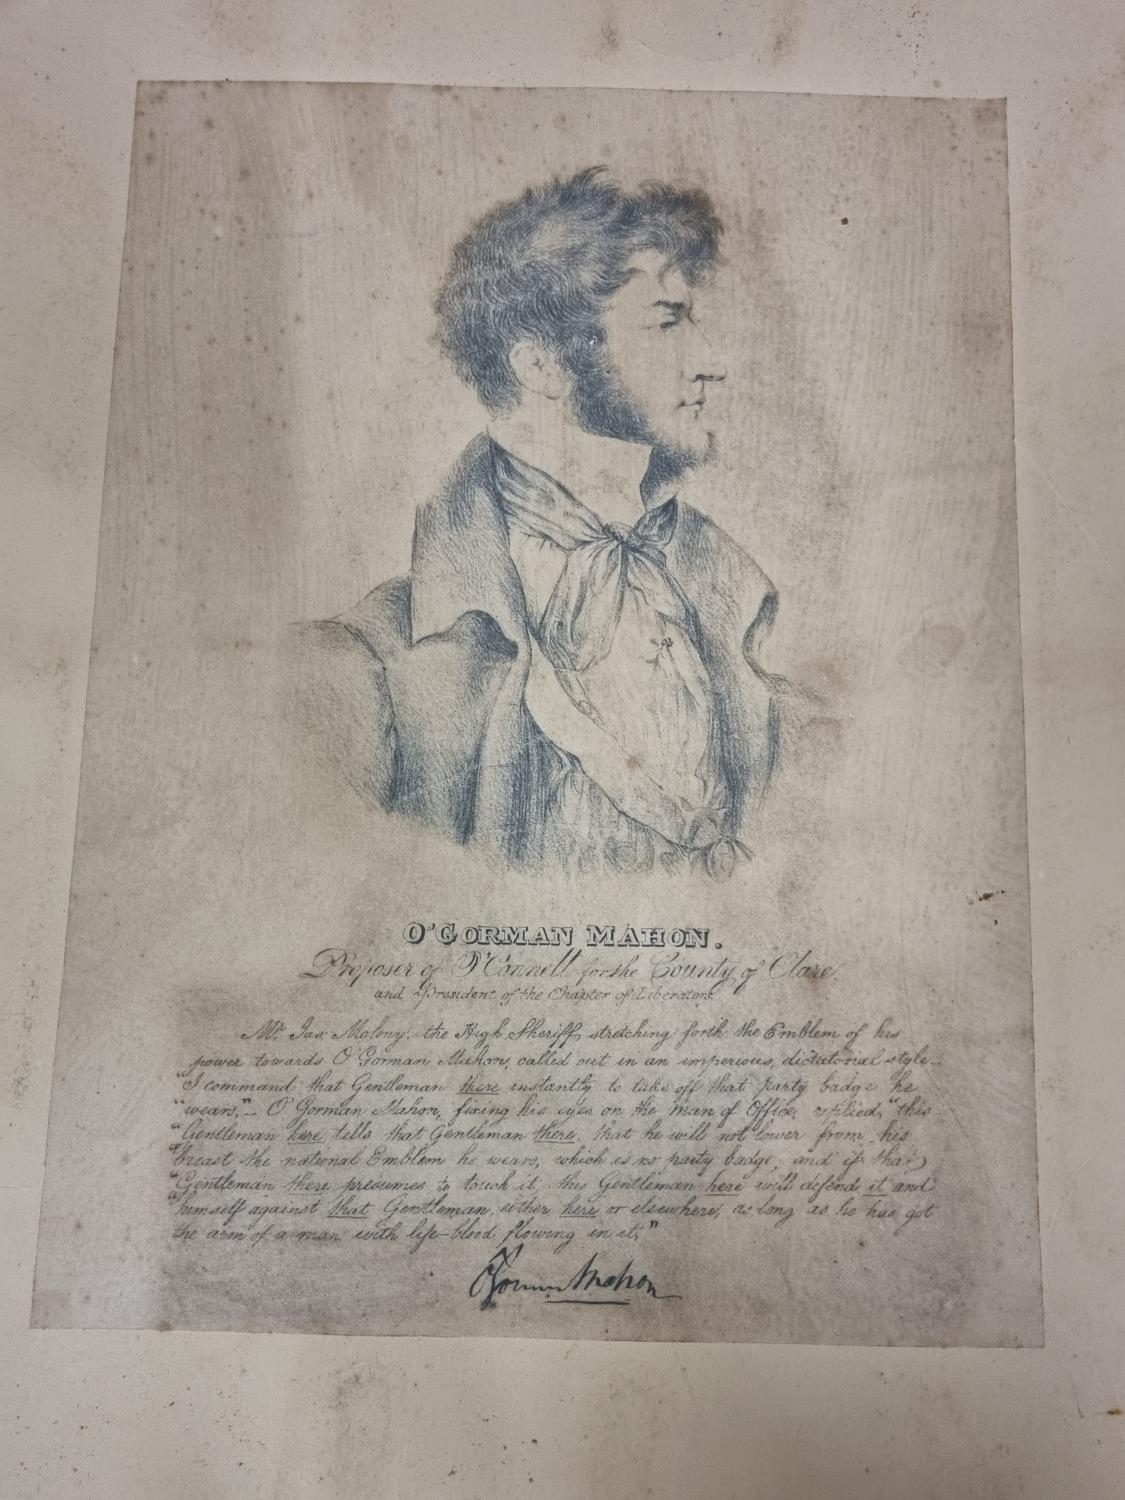 O'GORMAN MAHON.
Proposer of O'Connell for the County of Clare
and President of the Chapter of Liberators
Mr. Jas. Molony, the High Sheriff, stretching forth the Emblem of his
power towards O'Gorman Mahon, called out in an imperious, dictatorial style—
"I command that Gentleman there instantly to take off that party badge he
"wears,"— O'Gorman Mahon, fixing his eyes on the man of Office, replied, "this
"Gentleman here tells that Gentleman there, that he will not lower from his
"breast the national Emblem he wears, which is no party badge; and if that
"Gentleman there presumes to touch it, this Gentleman here will defend it and
"himself against that Gentleman, either here or elsewhere, as long as he has got
the arm of a man with life-blood flowing in it,"
O'Gorman Mahon